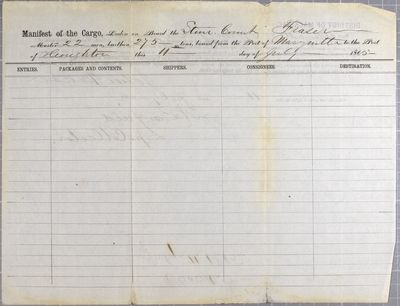 Manifest of the Cargo, Laden on Board the Steamr Comet Fraser
Master 22 men, burthen 275 tons, bound from the Port of Marquette to the Port
of Houghton this 11 day of July 1865
ENTRIES. PACKAGES AND CONTENTS. SHIPPERS. CONSIGNEES. DESTINATION.